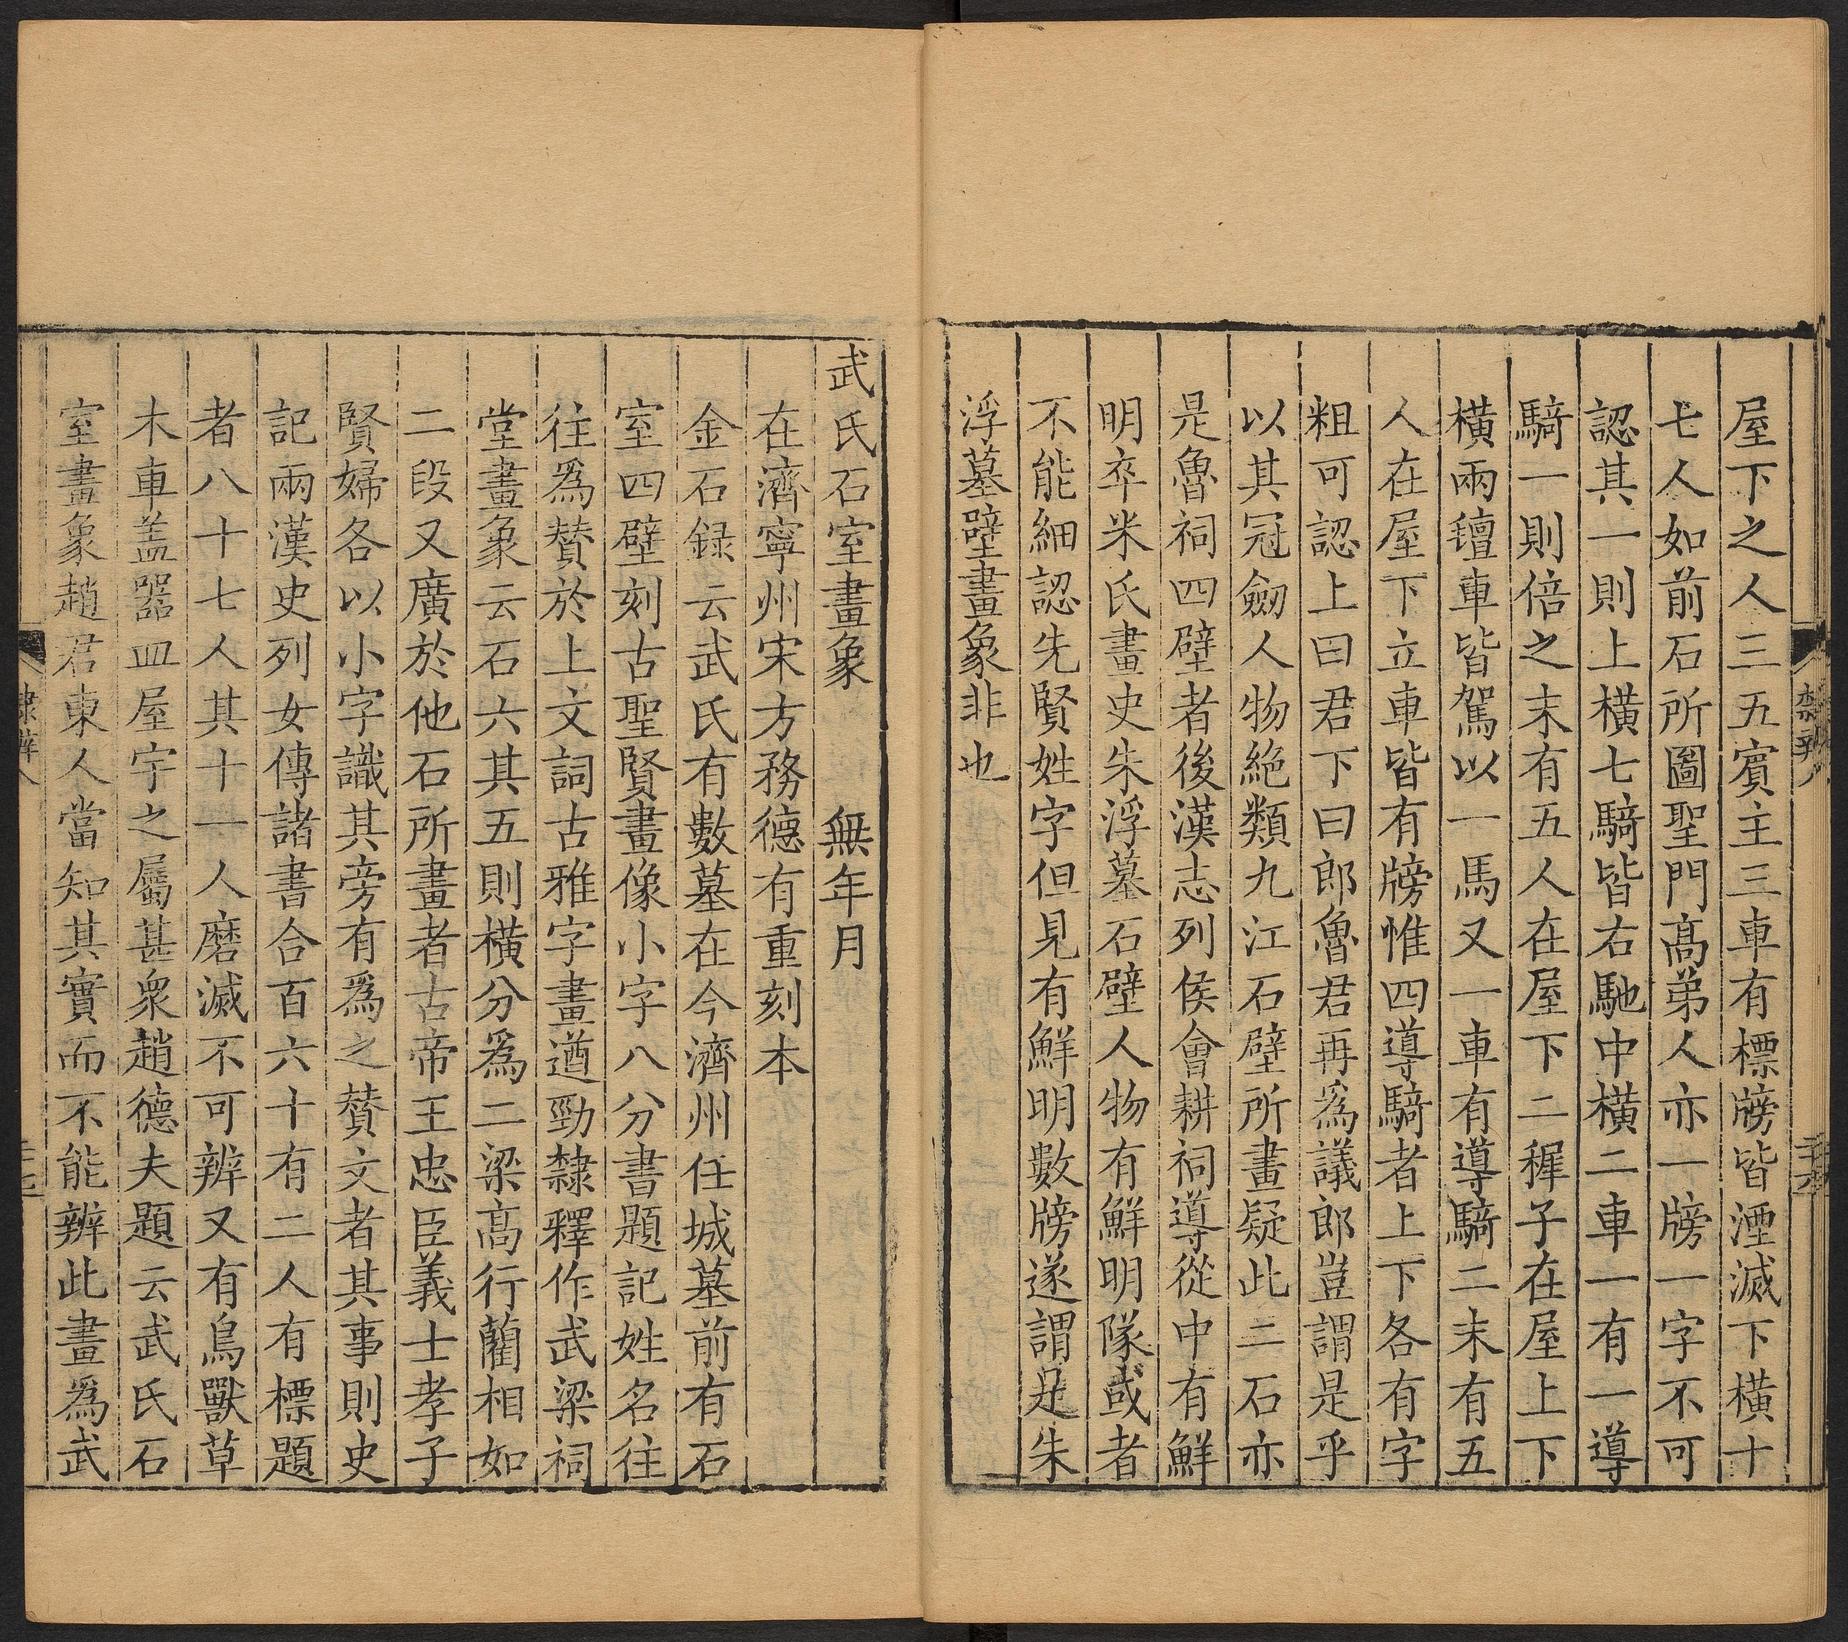 屋下之人三五賓主三車有標牓皆湮滅下横十
七人如前石所圖聖門髙弟人亦一牓一字不可
認其一則上横七騎皆右馳中横二車一有一導
騎一則倍之末有五人在屋下二穉子在屋上下
横兩䡀車皆駕以一馬又一車有導騎二末有五
人在屋下立車皆有牓惟四導騎者上下各有字
粗可認上曰君下曰郎魯君再爲議郎豈謂是乎
以其冠劒人物絶類九江石壁所畫疑此二石亦
是魯祠四壁者後漢志列侯會耕祠導從中有鮮
明卒米氏畫史朱浮墓石壁人物有鮮明隊或者
不能細認先賢姓字但見有鮮明數牓遂謂是朱
浮墓壁畫象非也
武氏石室畫象 無年月
在濟寧州宋方務德有重刻本
金石録云武氏有數墓在今濟州任城墓前有石
室四壁刻古聖賢畫像小字八分書題記姓名往
往爲贊於上文詞古雅字畫遒勁隸釋作武梁祠
堂畫象云石六其五則横分爲二梁髙行藺相如
二段又廣於他石所畫者古帝王忠臣義士孝子
賢婦各以小字識其旁有爲之贊文者其事則史
記兩漢史列女傳諸書合百六十有二人有標題
者八十七人其十一人磨滅不可辨又有鳥獸草
木車盖器皿屋宇之屬甚衆趙德夫題云武氏石
室畫象趙君東人當知其實而不能辨此畫爲武